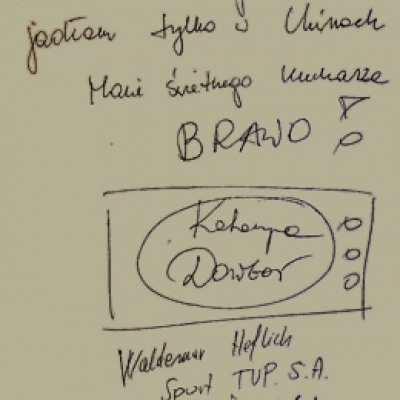 jadłam tylko w Chinach
Macie świetnego kucharza
BRAWO
Katarzyna
Dowbor
Waldemar Heflich
Sport TVP. S.A.